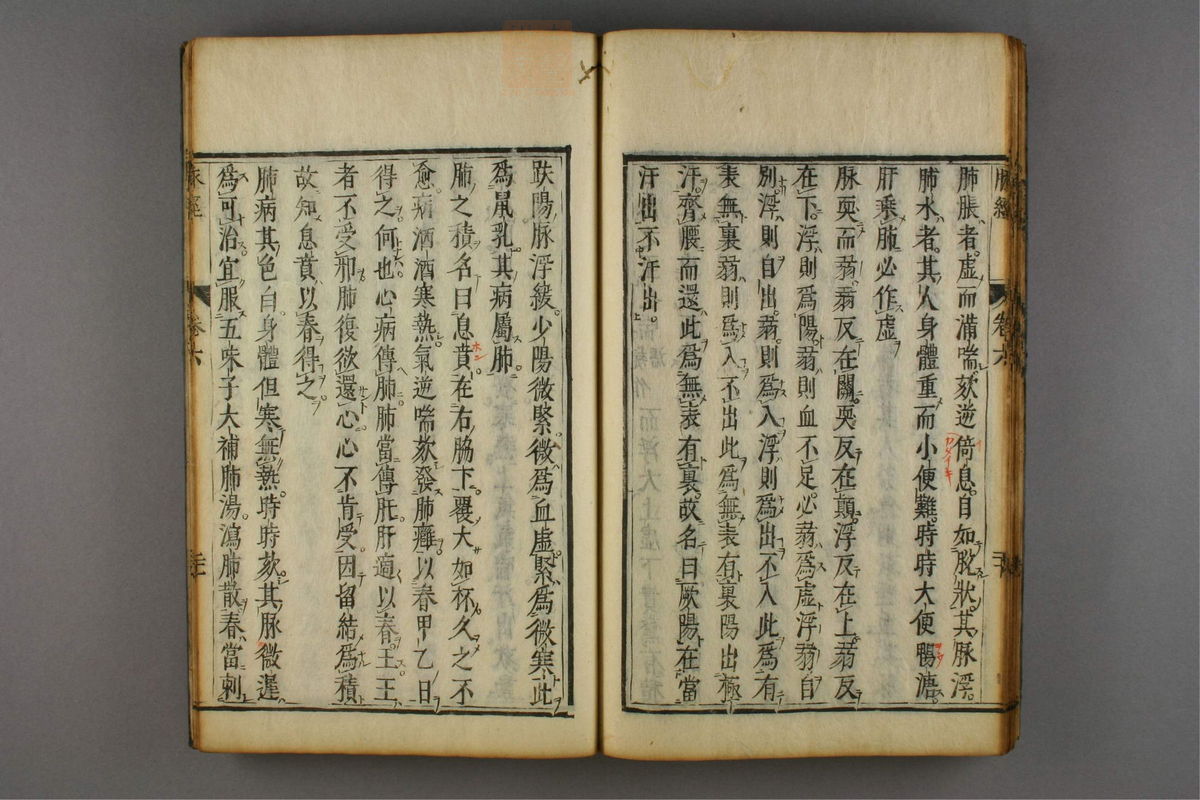 脉經
卷六
肺脹者虛而滿喘欬逆倚息自如脫狀其脉浮
肺水者其人身體重而小便難時時大便鴨溏
肝乘肺必作虛
脉耎而蒻蒻反在關耎反在顛浮反在上蒻反
在下浮則爲陽蒻則血不足必蒻爲虛浮蒻自
別浮則自出蒻則爲入浮則爲出不入此爲有
表無裏蒻則爲入不出此爲無表有裏陽出極
汗齊腰而還此爲無表有裏故名曰厥陽在當
汗出不汗出
趺陽脉浮緩少陽微緊微爲血虛緊爲微寒此
爲鼠乳其病屬肺
肺之積名曰息賁在右脇下覆大如杯久久不
愈病洒洒寒熱氣逆喘欬發肺癰以春甲乙日
得之何也心病傳肺肺當傳肝肝適以春王王
者不受邪肺復欲還心心不肯受因留結爲積
故知息賁以春得之
肺病其色白身體但寒無熱時時欬其脉微遲
爲可治宜服五味子大補肺湯瀉肺散春當刺
脉經
卷六